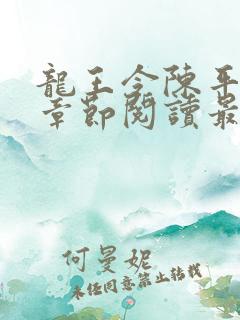 龍王令陳平
章節閱讀最
何曼妮
未經同意禁止轉載